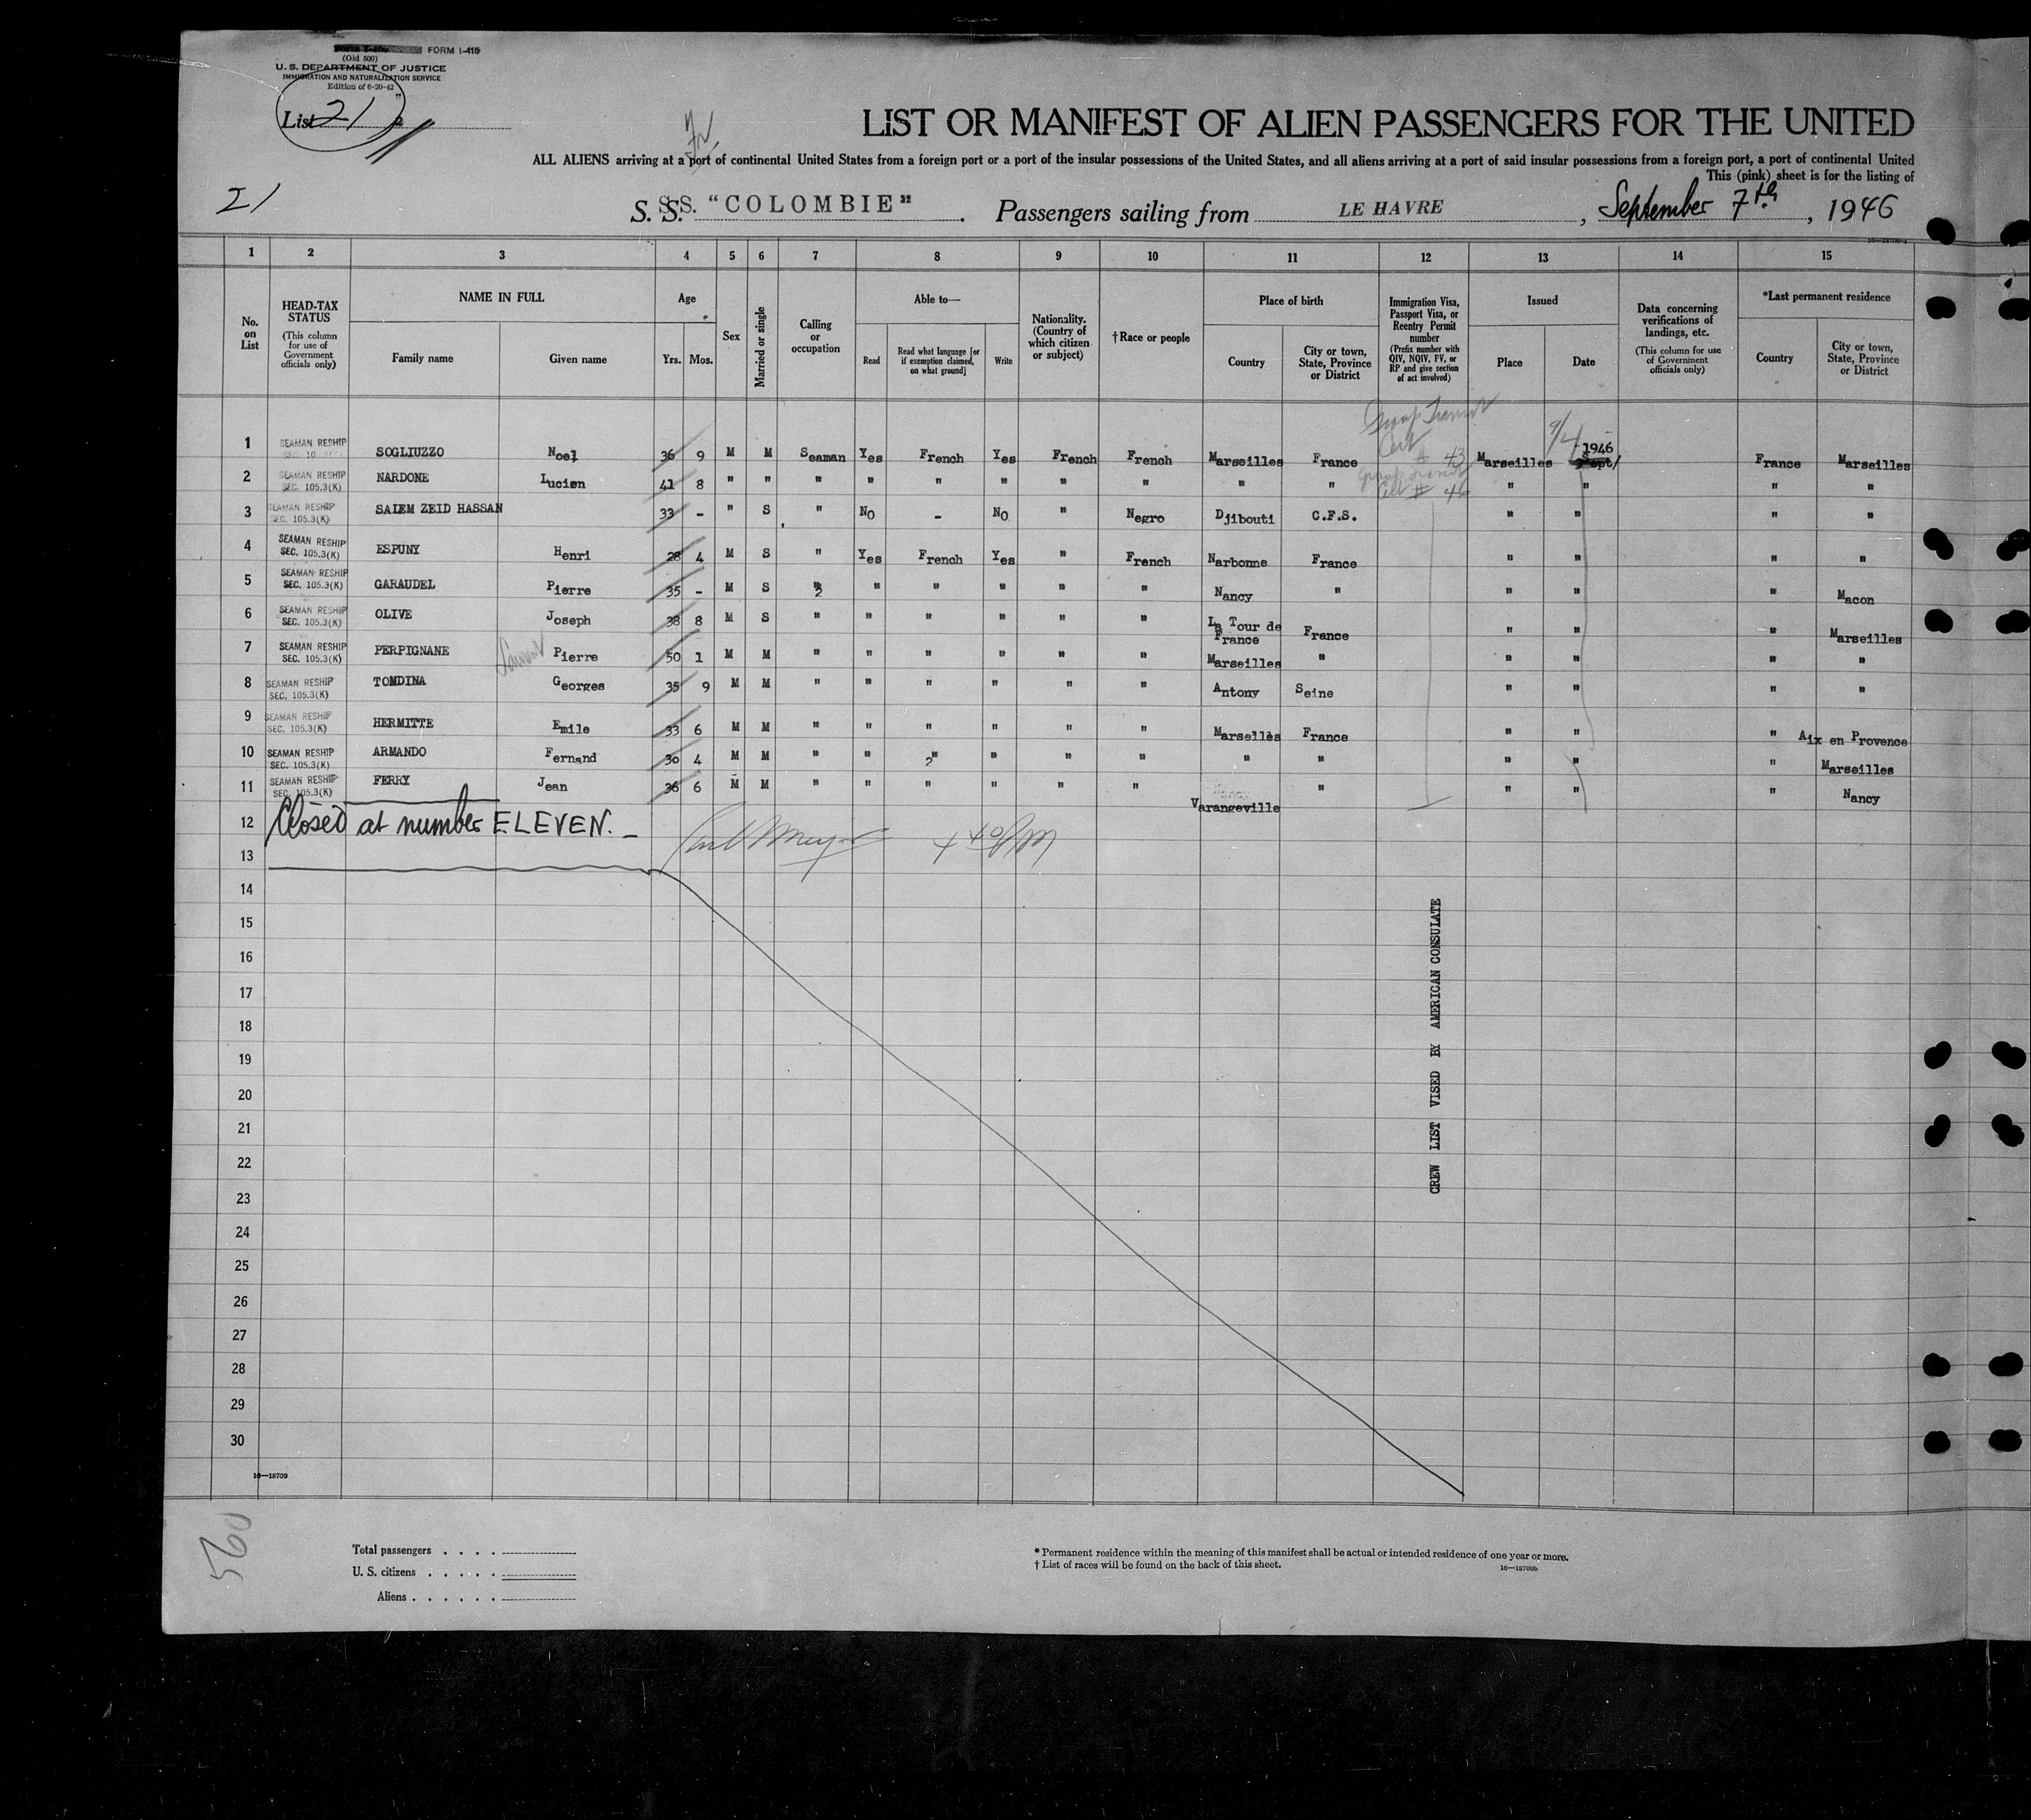 FORM I-415
(Old 500)
U. S. DEPARTMENT OF JUSTICE
IMMIGRATION AND NATURALIZATION SERVICE
Edition of 6-20-42
List 21
LIST OR MANIFEST OF ALIEN PASSENGERS FOR THE UNITED
ALL ALIENS arriving at a port of continental United States from a foreign port or a port of the insular possessions of the United States, and all aliens arriving at a port of said insular possessions from a foreign port, a port of continental United
This (pink) sheet is for the listing of
21
S. S. S.S. "COLOMBIE" . Passengers sailing from LE HAVRE , September 7th , 1946
1 2 3 4 5 6 7 8 9 10 11 12 13 14 15
No. on List
HEAD-TAX STATUS
(This column for use of Government officials only)
NAME IN FULL
Family name
Given name
Age
Yrs. Mos.
Sex
Married or single
Calling or occupation
Able to—
Read
Read what language [or if exemption claimed, on what ground]
Write
Nationality. (Country of which citizen or subject)
†Race or people
Place of birth
Country
City or town, State, Province or District
Immigration Visa, Passport Visa, or Reentry Permit number
(Prefix number with QIV, NQIV, PV, or RP and give section of act involved)
Issued
Place
Date
Data concerning verifications of landings, etc.
(This column for use of Government officials only)
*Last permanent residence
Country
City or town, State, Province or District
Group Transit
Cert
# 43
9/4
1 SEAMAN RESHIP SOGLIUZZO Noel 36 9 M M Seaman Yes French Yes French French Marseilles France Marseilles 1946 France Marseilles
2 SEAMAN RESHIP SEC. 105.3(K) NARDONE Lucien 41 8 " " " " " " " " " " Group Transit Cert # 46 " " " "
3 SEAMAN RESHIP SEC. 105.3(K) SALEM ZEID HASSAN 33 - " S " No - No " Negro Djibouti C.F.S. " " " "
4 SEAMAN RESHIP SEC. 105.3(K) ESPUNY Henri 28 4 M S " Yes French Yes " French Narbonne France " " " "
5 SEAMAN RESHIP SEC. 105.3(K) GARAUDEL Pierre 35 - M S " " " " " " Nancy " " " " Macon
6 SEAMAN RESHIP SEC. 105.3(K) OLIVE Joseph 38 8 M S " " " " " " La Tour de France France " " " Marseilles
7 SEAMAN RESHIP SEC. 105.3(K) PERPIGNANE Pierre 50 1 M M " " " " " " Marseilles " " " " "
8 SEAMAN RESHIP SEC. 105.3(K) TOMDINA Georges 35 9 M M " " " " " " Antony Seine " " " "
9 SEAMAN RESHIP SEC. 105.3(K) HERMITTE Emile 33 6 M M " " " " " " Marselles France " " " Aix en Provence
10 SEAMAN RESHIP SEC. 105.3(K) ARMANDO Fernand 30 4 M M " " " " " " " " " " " Marseilles
11 SEAMAN RESHIP SEC. 105.3(K) FERRY Jean 36 6 M M " " " " " " Varangeville " " " " Nancy
12 Closed at number ELEVEN. _
13
14
15
16
17
18
19
20
21
22
23
24
25
26
27
28
29
30
CREW LIST VISED BY AMERICAN CONSULATE
16—18709
560
Total passengers . . . .
U. S. citizens . . . . .
Aliens . . . . . .
* Permanent residence within the meaning of this manifest shall be actual or intended residence of one year or more.
† List of races will be found on the back of this sheet.
16—18709b